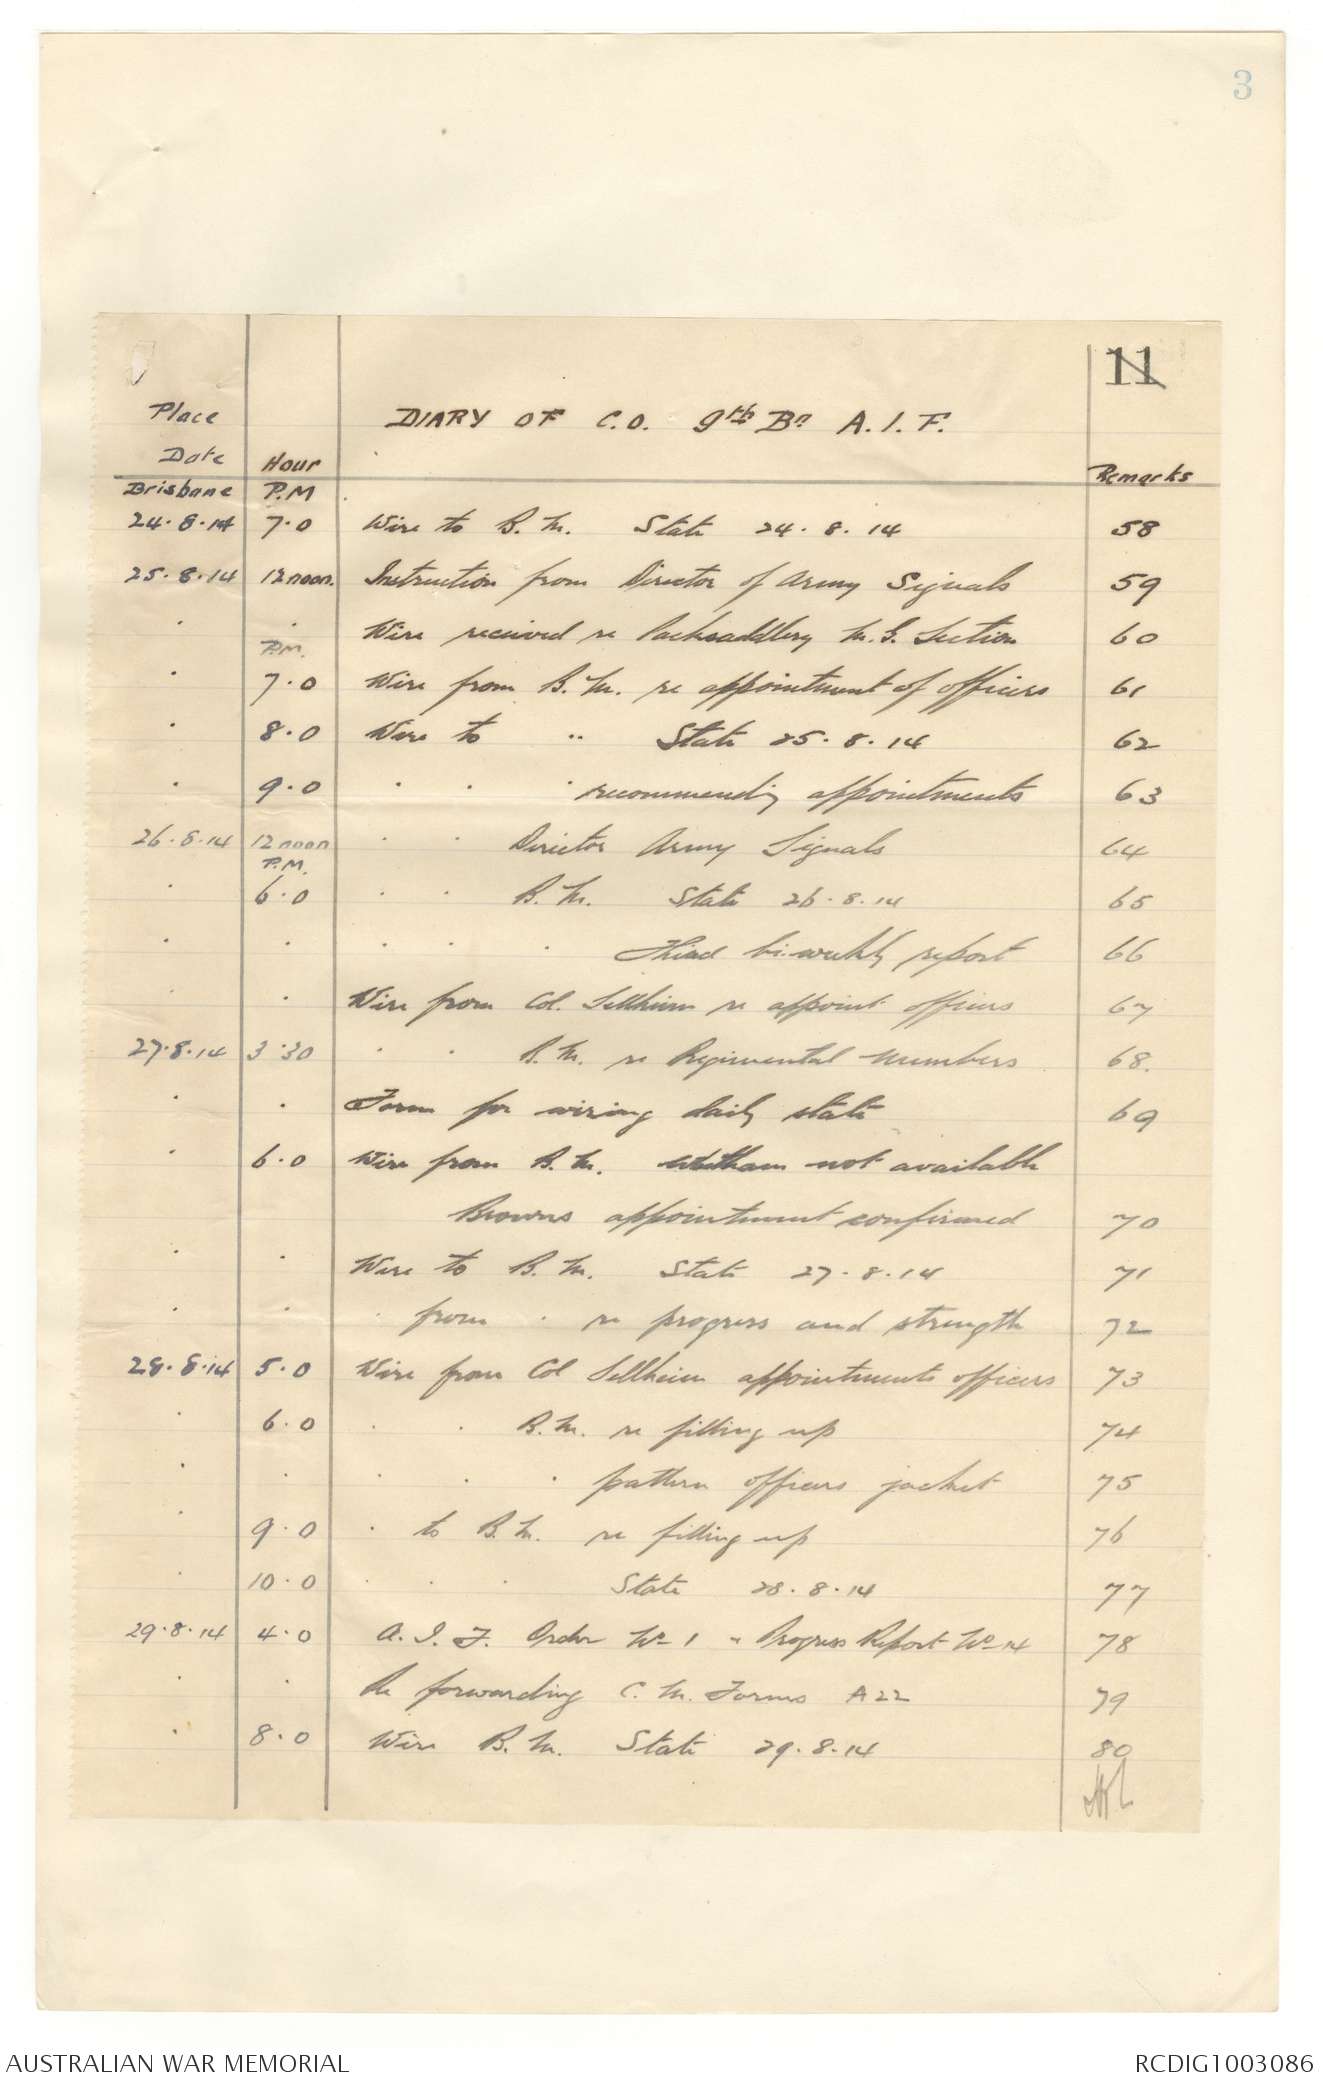 3
11
Place
DIARY OF C.O. 9th Bn A.I.F.
Date Hour Remarks
Brisbane P.M
24.8.14 7.0 Wire to B.M. State 24.8.14 58
25.8.14 12 noon. Instruction from Director of Army Signals 59
" " Wire received re Packsaddlery M.G. Section 60
P.M.
" 7.0 Wire from B.M. re appointment of officers 61
" 8.0 Wire to " State 25.8.14 62
" 9.0 " " " recommending appointments 63
26.8.14 12 noon " " Director Army Signals 64
P.M.
" 6.0 " " B.M. State 26.8.14 65
" " " " " Third bi-weekly report 66
" " Wire from Col. Sellheim re appoint officers 67
27.8.14 3.30 " " B.M. re Regimental numbers 68.
" " Form for wiring daily state 69
" 6.0 Wire from B.M. Witham not available
Browns appointment confirmed 70
" " Wire to B.M. State 27.8.14 71
" " " from " re progress and strength 72
28.8.14 5.0 Wire from Col Sellheim appointments officers 73
" 6.0 " " B.M. re filling up 74
" " " " " pattern officers jacket 75
" 9.0 " to B.M. re filling up 76
" 10.0 " " " State 28.8.14 77
29.8.14 4.0 A.I.F. Order No 1 " Progress Report No 14 78
" " Re forwarding C.M. Forms A22 79
" 8.0 Wire B.M. State 29.8.14 80
AUSTRALIAN WAR MEMORIAL RCDIG1003086